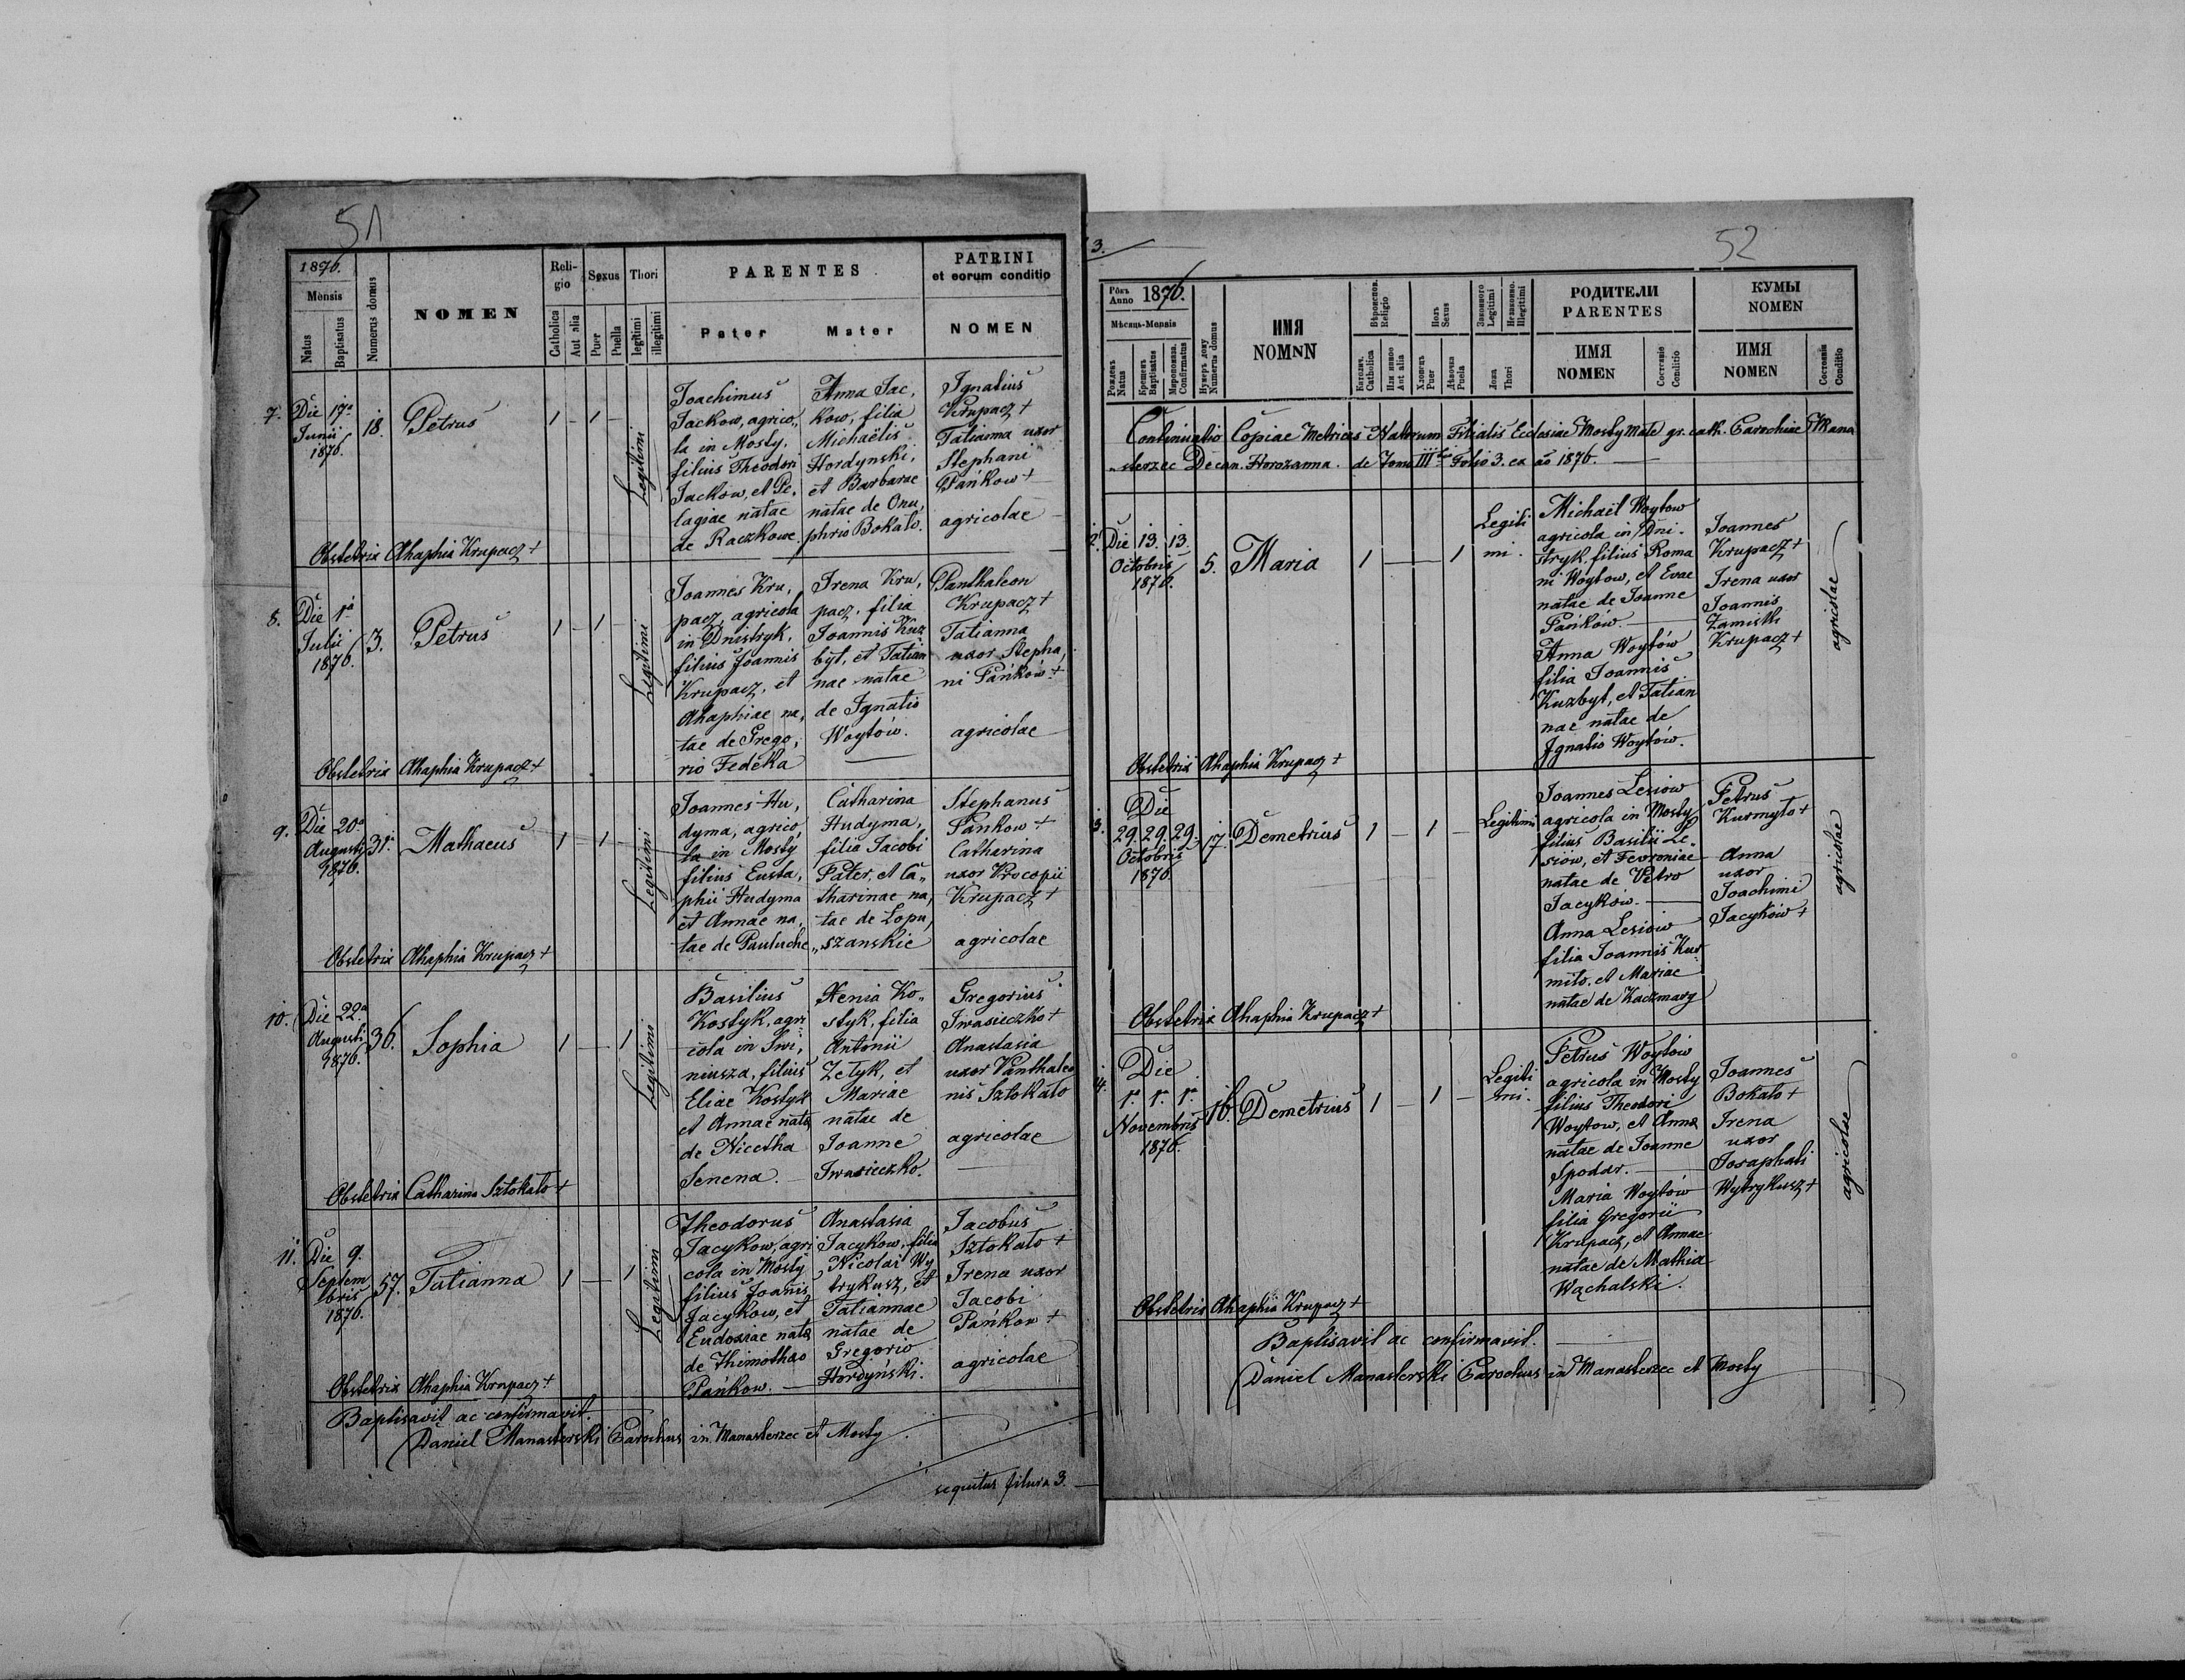 51
1876.
Mensis
Natus
Baptisatus
Numerus domus
NOMEN
Reli-
gio
Catholica
Aut alia
Sexus
Puer
Puella
Thori
legitimi
illegitimi
PARENTES
Pater
Mater
PATRINI
et eorum conditio
NOMEN
7. Die 17a
Junii
1876.
18.
Petrus
1 - 1 -
Legitimi
Joachimus
Jackow, agrico„
la in Mosty.
filius Theodori
Jackow, et Pe,
lagiae natae
de Raczkowe.
Anna Jac,
kow, filia
Michaëlis
Hordynski,
et Barbarae
natae de Onu,
phrio Bokalo.
Ignatius
Krupacz +
Tatianna uxor
Stephani
Pańkow +
agricolae
Obstetrix Ahaphia Krupacz +
8. Die 1a
Julii
1876.
3.
Petrus
1 - 1 -
Legitimi
Joannes Kru,
pacz, agricola
in Dnistryk,
filius Joannis
Krupacz, et
Ahaphiae na,
tae de Grego,
rio Fedéka
Irena Kru,
pacz, filia
Joannis Kuz
byt, et Tatian
nae natae
de Ignatio
Woytów.
Panthaleon
Krupacz +
Tatianna
uxor Stepha,
ni Pańków +
agricolae
Obstetrix Ahaphia Krupacz +
9. Die 20a
Augusti
1876.
31.
Mathaeus
1 - 1 -
Legitimi
Joannes Hu,
dyma, agrico,
la in Mosty
filius Eusta,
phii Hudyma
et Annae na,
tae de Pauluche
Catharina
Hudyma,
filia Jacobi
Pater, et Ca„
tharinae na,
tae de Lopu,
„szanskie
Stephanus
Pankow +
Catharina
uxor Procopii
Krupacz +
agricolae
Obstetrix Ahaphia Krupacz +
10. Die 22a
Augusti
1876.
36.
Sophia
1 - 1
Legitimi
Basilius
Kostyk, agri
cola in Swi,
niusza, filius
Eliae Kostyk
et Annae nata
de Nicetha
Senena.
Xenia Ko„
styk, filia
Antonii
Zetyk, et
Mariae
natae de
Joanne
Iwasieczko.
Gregorius
Iwasieczko +
Anastasia
uxor Panthaleo
nis Sztokało
agricolae
Obstetrix Catharina Sztokało +
11. Die 9.
Septem
bris
1876.
57.
Tatianna
1 - 1
Legitimi
Theodorus
Jacykow, agri
cola in Mosty
filius Joanis
Jacykow, et
Eudoxiae nata
de Thimotheo
Pańkow.
Anastasia
Jacykow, filia
Nicolai Wy
trykusz, et
Tatiannae
natae de
Gregorio
Hordyński.
Jacobus
Sztokało +
Irena uxor
Jacobi
Pańkow +
agricolae
Obstetrix Ahaphia Krupacz +
Baptisavit ac confirmavit.
Daniel Manasterski Parochus in Manasterzec et Mosty.
sequitur filura 3.
3.
52
Рôкъ
Anno 1876.
Мѣсяць-Mensis
Рожденъ
Natus
Крещенъ
Baptisatus
Мѵропомаза.
Confirmatus
Нумеръ дому
Numerus domus
ИМЯ
NOMNN
Вѣроиспов.
Religio
Католич.
Catholica
Или инное
Aut alia
Полъ
Sexus
Хлопецъ
Puer
Дѣвочка
Puela
Законного
Legitimi
Незаконно.
Illegitimi
Ложа
Thori
РОДИТЕЛИ
PARENTES
ИМЯ
NOMEN
Состояніе
Conditio
КУМЫ
NOMEN
ИМЯ
NOMEN
Состоянія
Conditio
Continuatio Copiae Metrices Natorum Filialis Eclesiae Mosty Mate gr. cath. Parochiae Mana
„sterzec Decan. Horozanna. de Tomi IIItio Folio 3. ex ao 1876.
2. Die 13. 13.
Octobris
1876.
5.
Maria
1 - - 1
Legiti
mi.
Michaël Woytow
agricola in Dni-
stryk, filius Roma
ni Woytow, et Evae
natae de Joanne
Pańków.
Anna Woytów
filia Joannis
Kuzbyt, et Tatian
nae natae de
Ignatio Woytów.
Joannes
Krupacz +
Irena uxor
Joannis
Zamistli
Krupacz +
agricolae
Obstetrix Ahaphia Krupacz +
3. Die
29. 29. 29.
Octobris
1876.
17.
Demetrius
1 - 1 -
Legitimi
Joannes Lesiow
agricola in Mosty
filius Basilii Le„
siów, et Fevroniae
natae de Petro
Jacyków.
Anna Lesiów
filia Joannis Kur
miło, et Mariae
natae de Kaczmarz
Petrus
Kurmyło +
Anna
uxor
Joachimi
Jacyków +
agricolae
Obstetrix Ahaphia Krupacz +
4. Die
1a. 1a. 1a.
Novembris
1876.
16.
Demetrius
1 - 1 -
Legiti
mi.
Petrus Woytów
agricola in Mosty
filius Theodori
Woytow, et Anna
natae de Joanne
Spodar.
Maria Woytów
filia Gregorii
Krupacz, et Annae
natae de Mathia
Wąchalski.
Joannes
Bokalo +
Irena
uxor
Josaphati
Wytrykusz +
agricolae
Obstetrix Ahaphia Krupacz +
Baptisavit ac confirmavit.
Daniel Manasterski Parochus in Manasterzec et Mosty